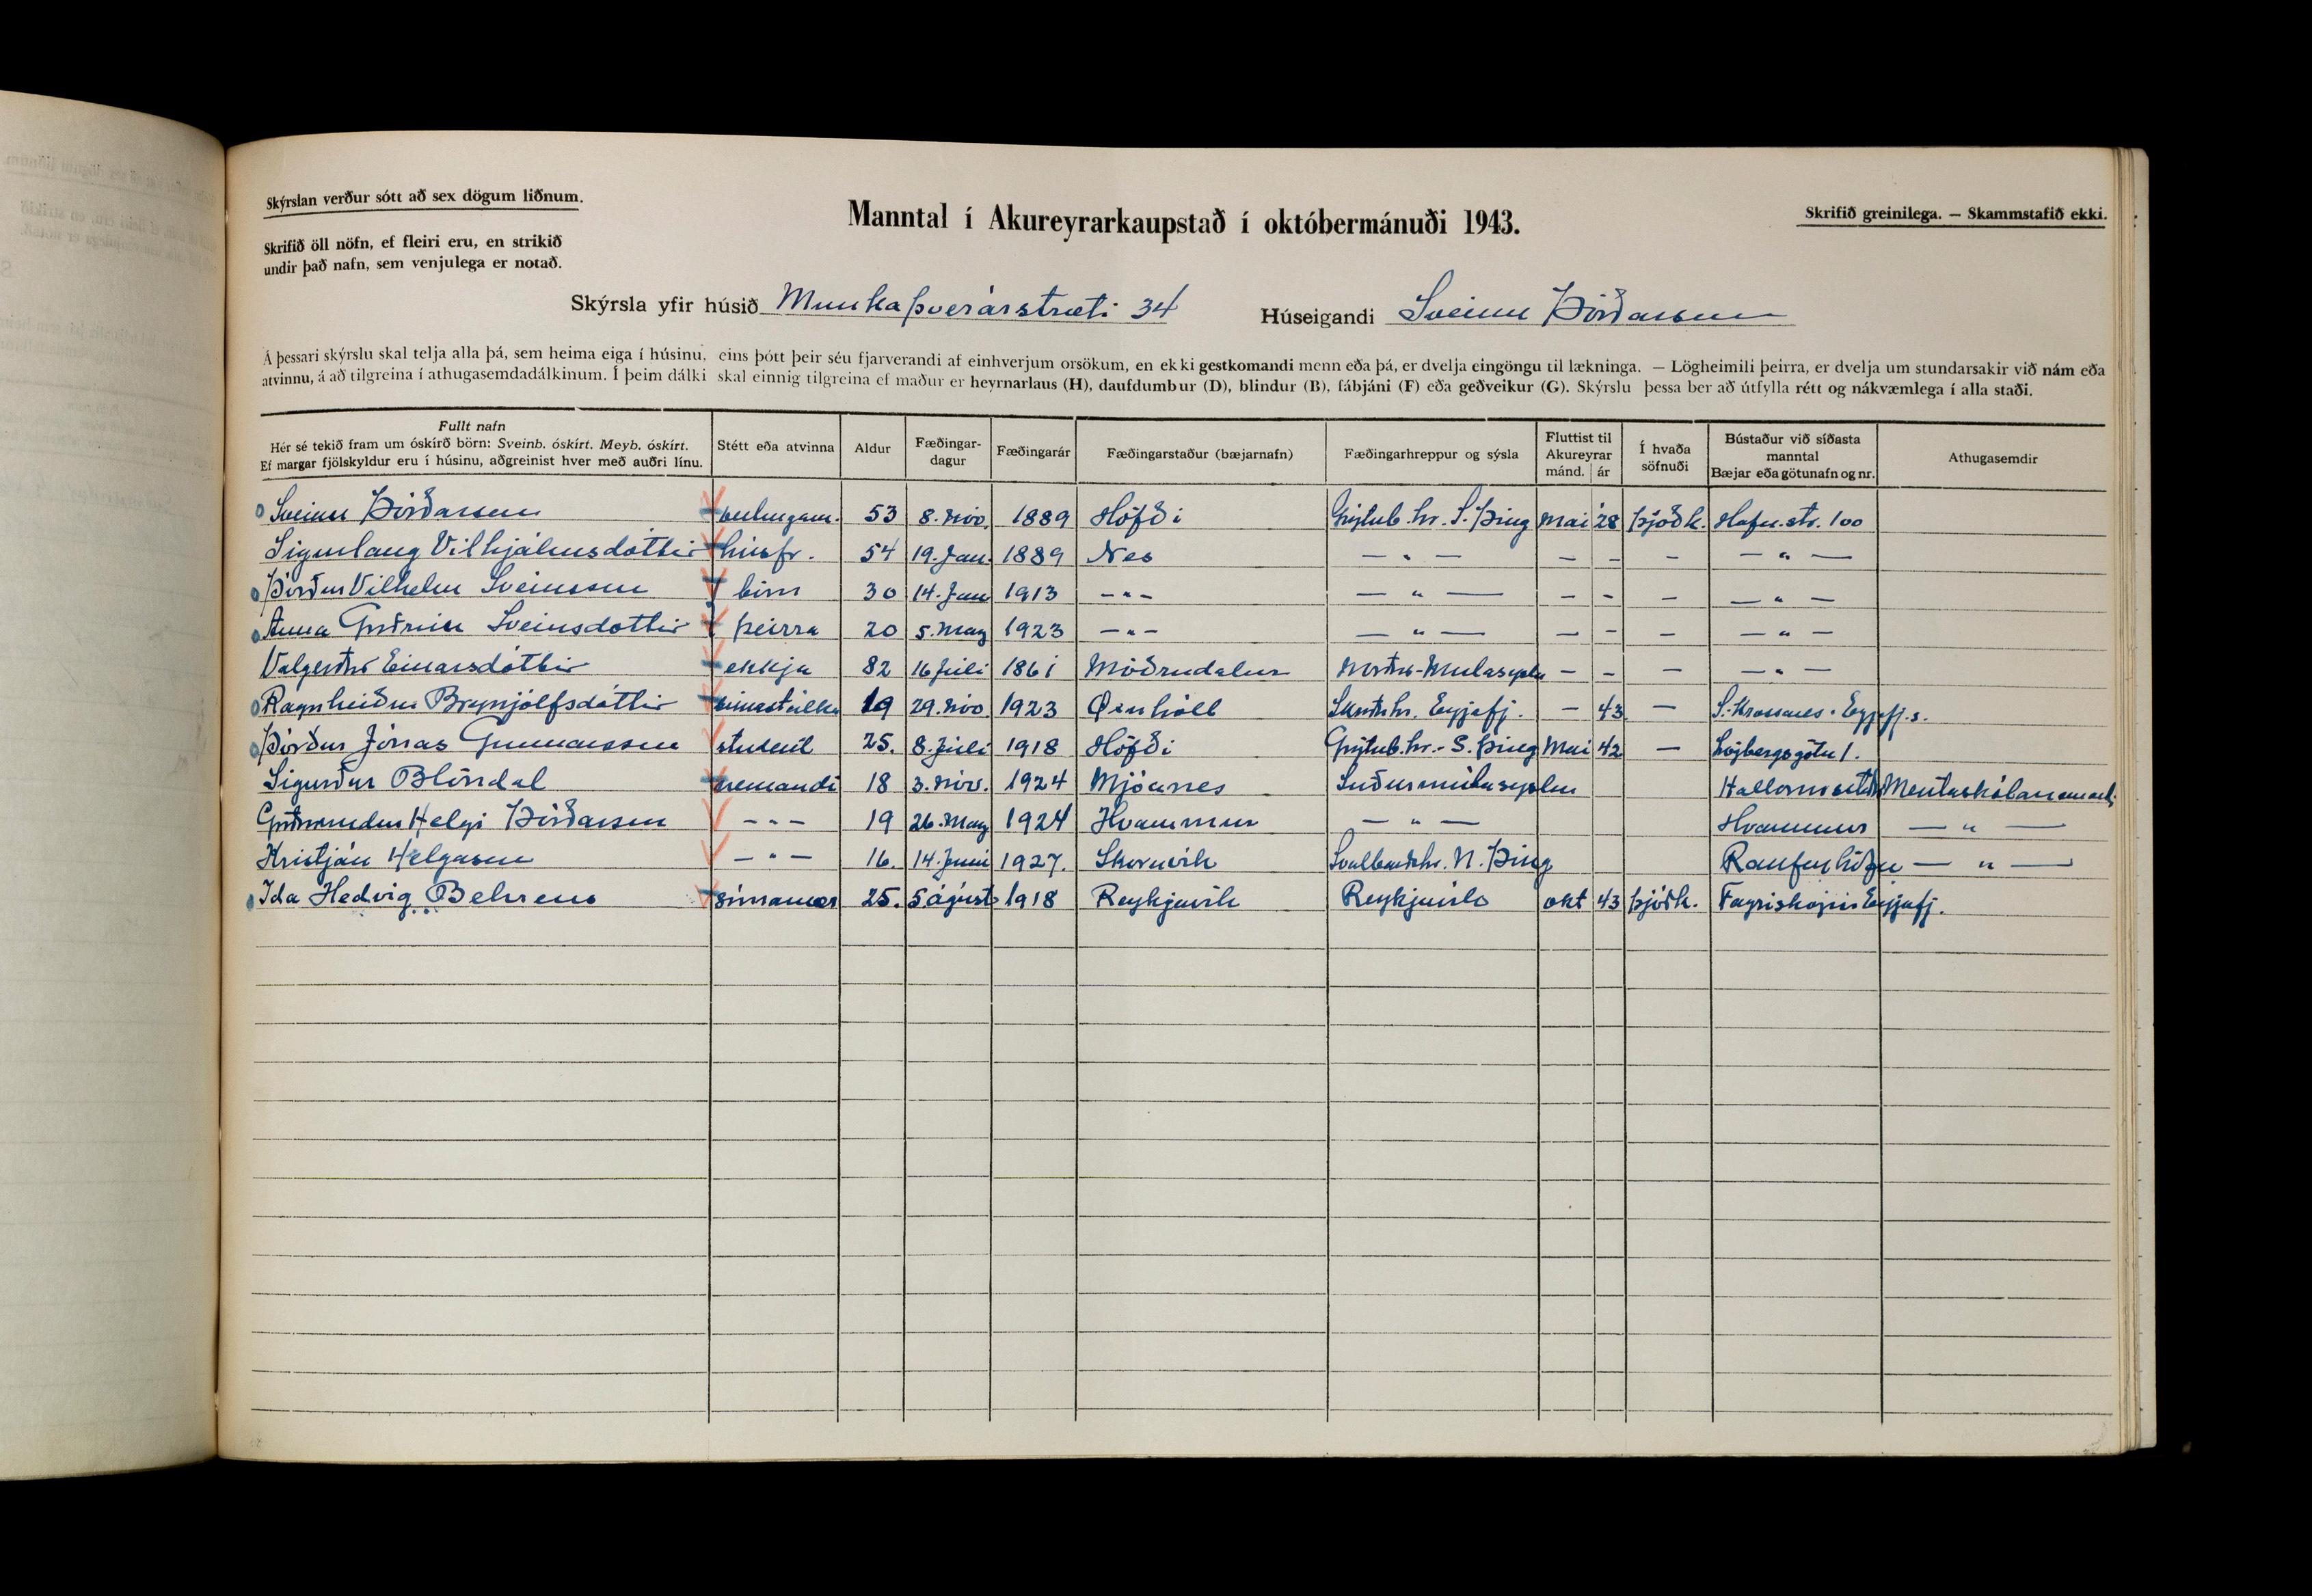 Skýrslan verður sótt að sex dögum liðnum.
Skrifið öll nöfn, ef fleiri eru, en strikið
undir það nafn, sem venjulega er notað.
Manntal í Akureyrarkaupstað í októbermánuði 1943.
Skrifið greinilega. — Skammstafið ekki.
Skýrsla yfir húsið Munkaþverárstræti 34 Húseigandi Sveinn Þórðarson
Á þessari skýrslu skal telja alla þá, sem heima eiga í húsinu, eins þótt þeir séu fjarverandi af einhverjum orsökum, en ekki gestkomandi menn eða þá, er dvelja eingöngu til lækninga. — Lögheimili þeirra, er dvelja um stundarsakir við nám eða
atvinnu, á að tilgreina í athugasemdadálkinum. Í þeim dálki skal einnig tilgreina ef maður er heyrnarlaus (H), daufdumbur (D), blindur (B), fábjáni (F) eða geðveikur (G). Skýrslu þessa ber að útfylla rétt og nákvæmlega í alla staði.
Fullt nafn
Hér sé tekið fram um óskírð börn: Sveinb. óskírt. Meyb. óskírt.
Ef margar fjölskyldur eru í húsinu, aðgreinist hver með auðri línu.
Stétt eða atvinna
Aldur
Fæðingar-
dagur
Fæðingarár
Fæðingarstaður (bæjarnafn)
Fæðingarhreppur og sýsla
Fluttist til
Akureyrar
mánd. ár
Í hvaða
söfnuði
Bústaður við síðasta
manntal
Bæjar eða götunafn og nr.
Athugasemdir
Sveinn Þórðarson 53 8. nóv. 1889 Höfði Grýtub.hr. S. Þing Mai '28 þjóðk. Hafn.str. 100
Sigurlaug Vilhjálmsdóttir húsfr. 54 19. Jan. 1889 Nes — " — — — — — " —
Þórður Vilhelm Sveinsson börn 30 14. Jan 1913 — " — — " — — — — — " —
Anna Guðrún Sveinsdóttir þeirra 20 5. May 1923 — " — — " — — — — — " —
Valgerður Einarsdóttir ekkja 82 16 Júlí 1861 Möðrudalur Norður-Mulasyslu — — — — " —
Ragnheiður Brynjólfsdóttir 19 29. nóv. 1923 Öxnhóll Skriðuhr. Eyjafj. — 43 — S.-Krossanes. Eyjafj.s.
Þórður Jónas Gunnarsson student 25. 8. Júlí 1918 Höfði Grýtub.hr. - S. Þing Mai 42 — Lögbergsgötu 1.
Sigurður Blöndal nemandi 18 3. nóv. 1924 Mjóanes Suðurmúlasyslu Hallormsstað Mentaskólanemandi
Guðmundur Helgi Þórðarson — " — 19 26. May 1924 Hvammur — " — Hvammur — " —
Kristján Helgason — " — 16. 14. Júní 1927. Skoruvík Svalbarðshr. N. Þing Raufarhöfn — " —
Ida Hedvig Behrens símamær 25. 5 ágúst 1918 Reykjavík Reykjavík okt 43 þjóðk. Fagriskógur Eyjafj.